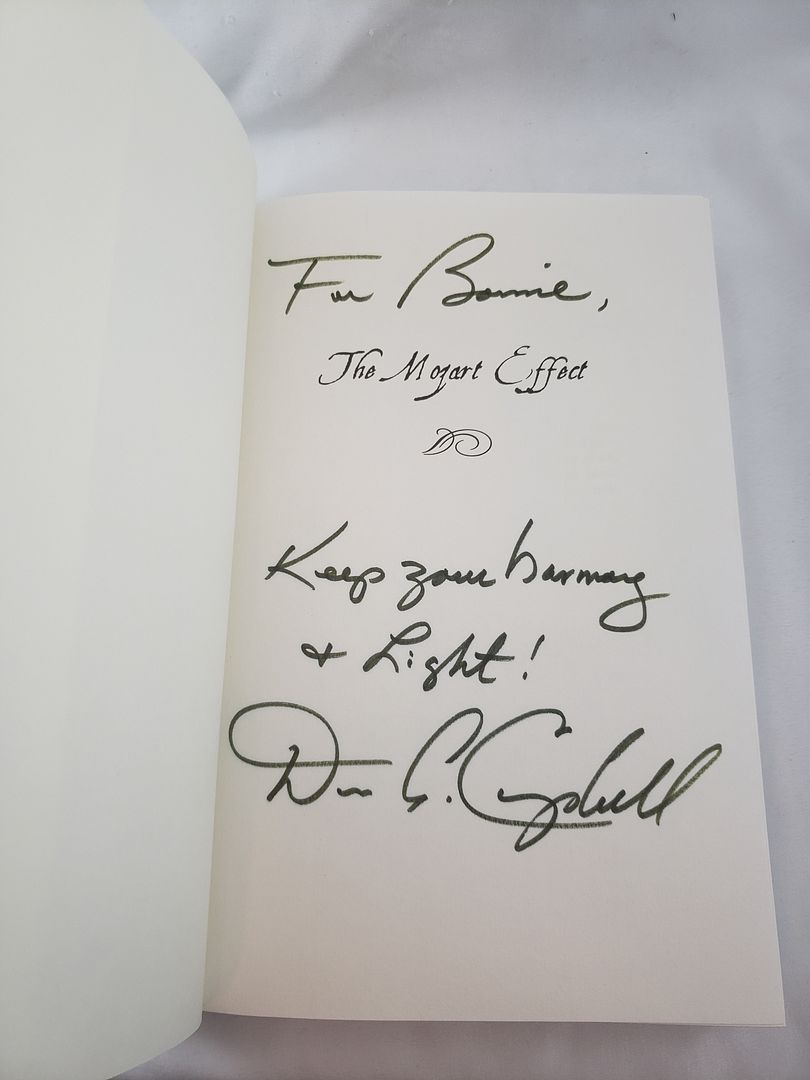 For Bonnie,
The Mozart Effect
Keep your harmony
+ Light!
Don G. Campbell